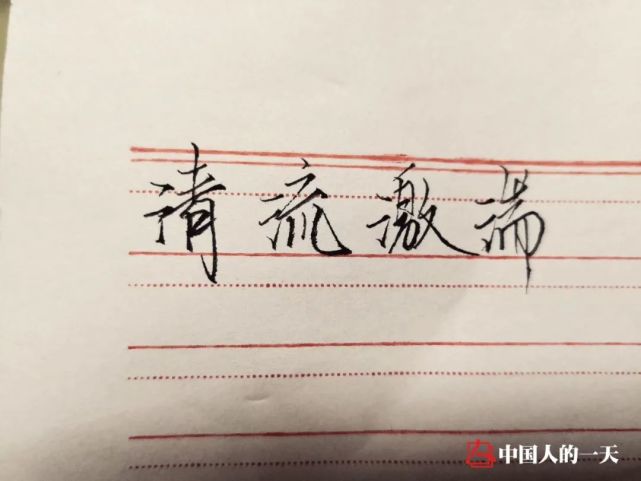 清流激湍
中国人的一天